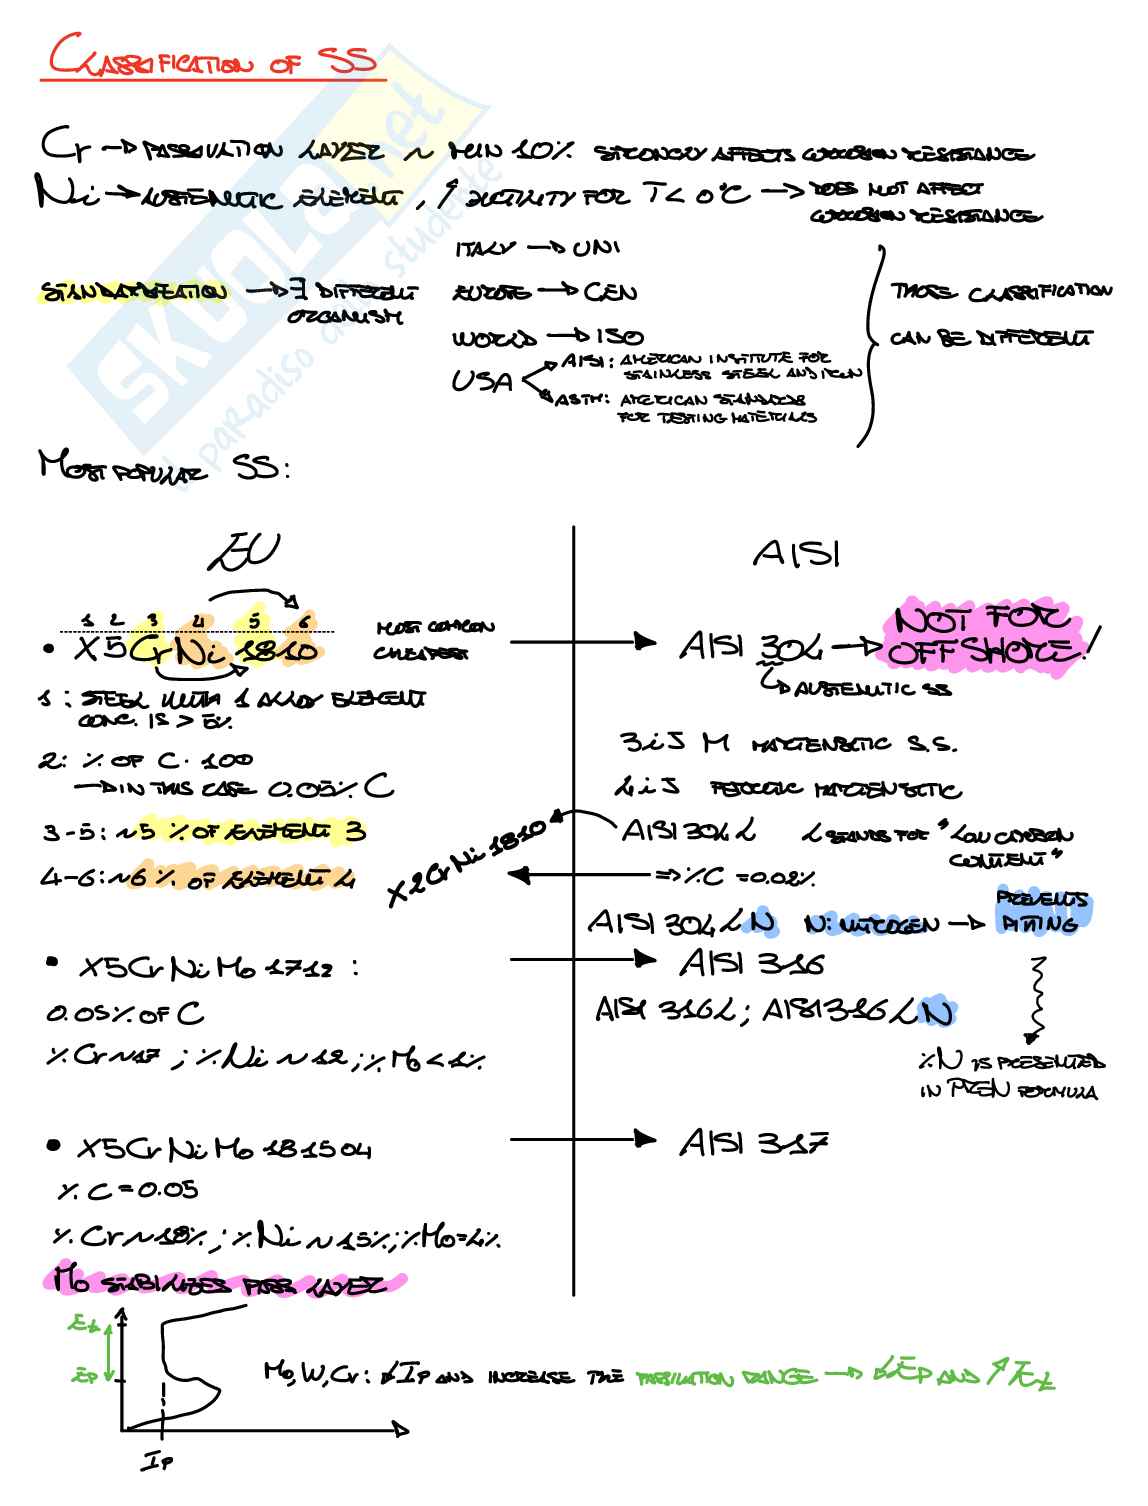 CLASSIFICATION OF SS
Cr → PASSIVATION LAYER ~ MIN 10% STRONGLY AFFECTS CORROSION RESISTANCE
Ni → AUSTENITIC ELEMENT, ↑ DUCTILITY FOR T < 0°C → DOES NOT AFFECT
CORROSION RESISTANCE
STANDARDISATION → ∃ DIFFERENT
ORGANISM
ITALY → UNI
EUROPE → CEN
WORLD → ISO
USA
AISI: AMERICAN INSTITUTE FOR
STAINLESS STEEL AND IRON
ASTM: AMERICAN STANDARDS
FOR TESTING MATERIALS
THOSE CLASSIFICATION
CAN BE DIFFERENT
MOST POPULAR SS:
EU
AISI
1 2 3 4 5 6
• X5CrNi1810
MOST COMMON
CHEAPEST
AISI 304 → NOT FOR
OFFSHORE!
AUSTENITIC SS
1: STEEL WITH 1 ALLOY ELEMENT
CONC. IS > 5%
2: % OF C · 100
→ IN THIS CASE 0.05% C
3-5: ~5 % OF ELEMENT 3
4-6: ~6 % OF ELEMENT 4
3iJ M MARTENSITIC S.S.
4iJ FERRITIC MARTENSITIC
AISI 304 L L STANDS FOR "LOW CARBON
CONTENT"
X2CrNi1810
⇒ %C = 0.02%
AISI 304 LN N: NITROGEN → PREVENTS
PITTING
• X5CrNiMo1712:
AISI 316
0.05% OF C
AISI 316L; AISI 316LN
% Cr ~ 17; % Ni ~ 12; % Mo < 1%
%N IS PRESENTED
IN PREN FORMULA
• X5CrNiMo181504
AISI 317
% C = 0.05
% Cr ~ 18%; % Ni ~ 15%; % Mo = 4%
Mo STABILIZES PASS LAYER
Et
Ep
Ip
Mo, W, Cr: ↓Ip AND INCREASE THE PASSIVATION RANGE → ↓Ep AND ↑Et
SKUOLA.net
il paradiso dello studente